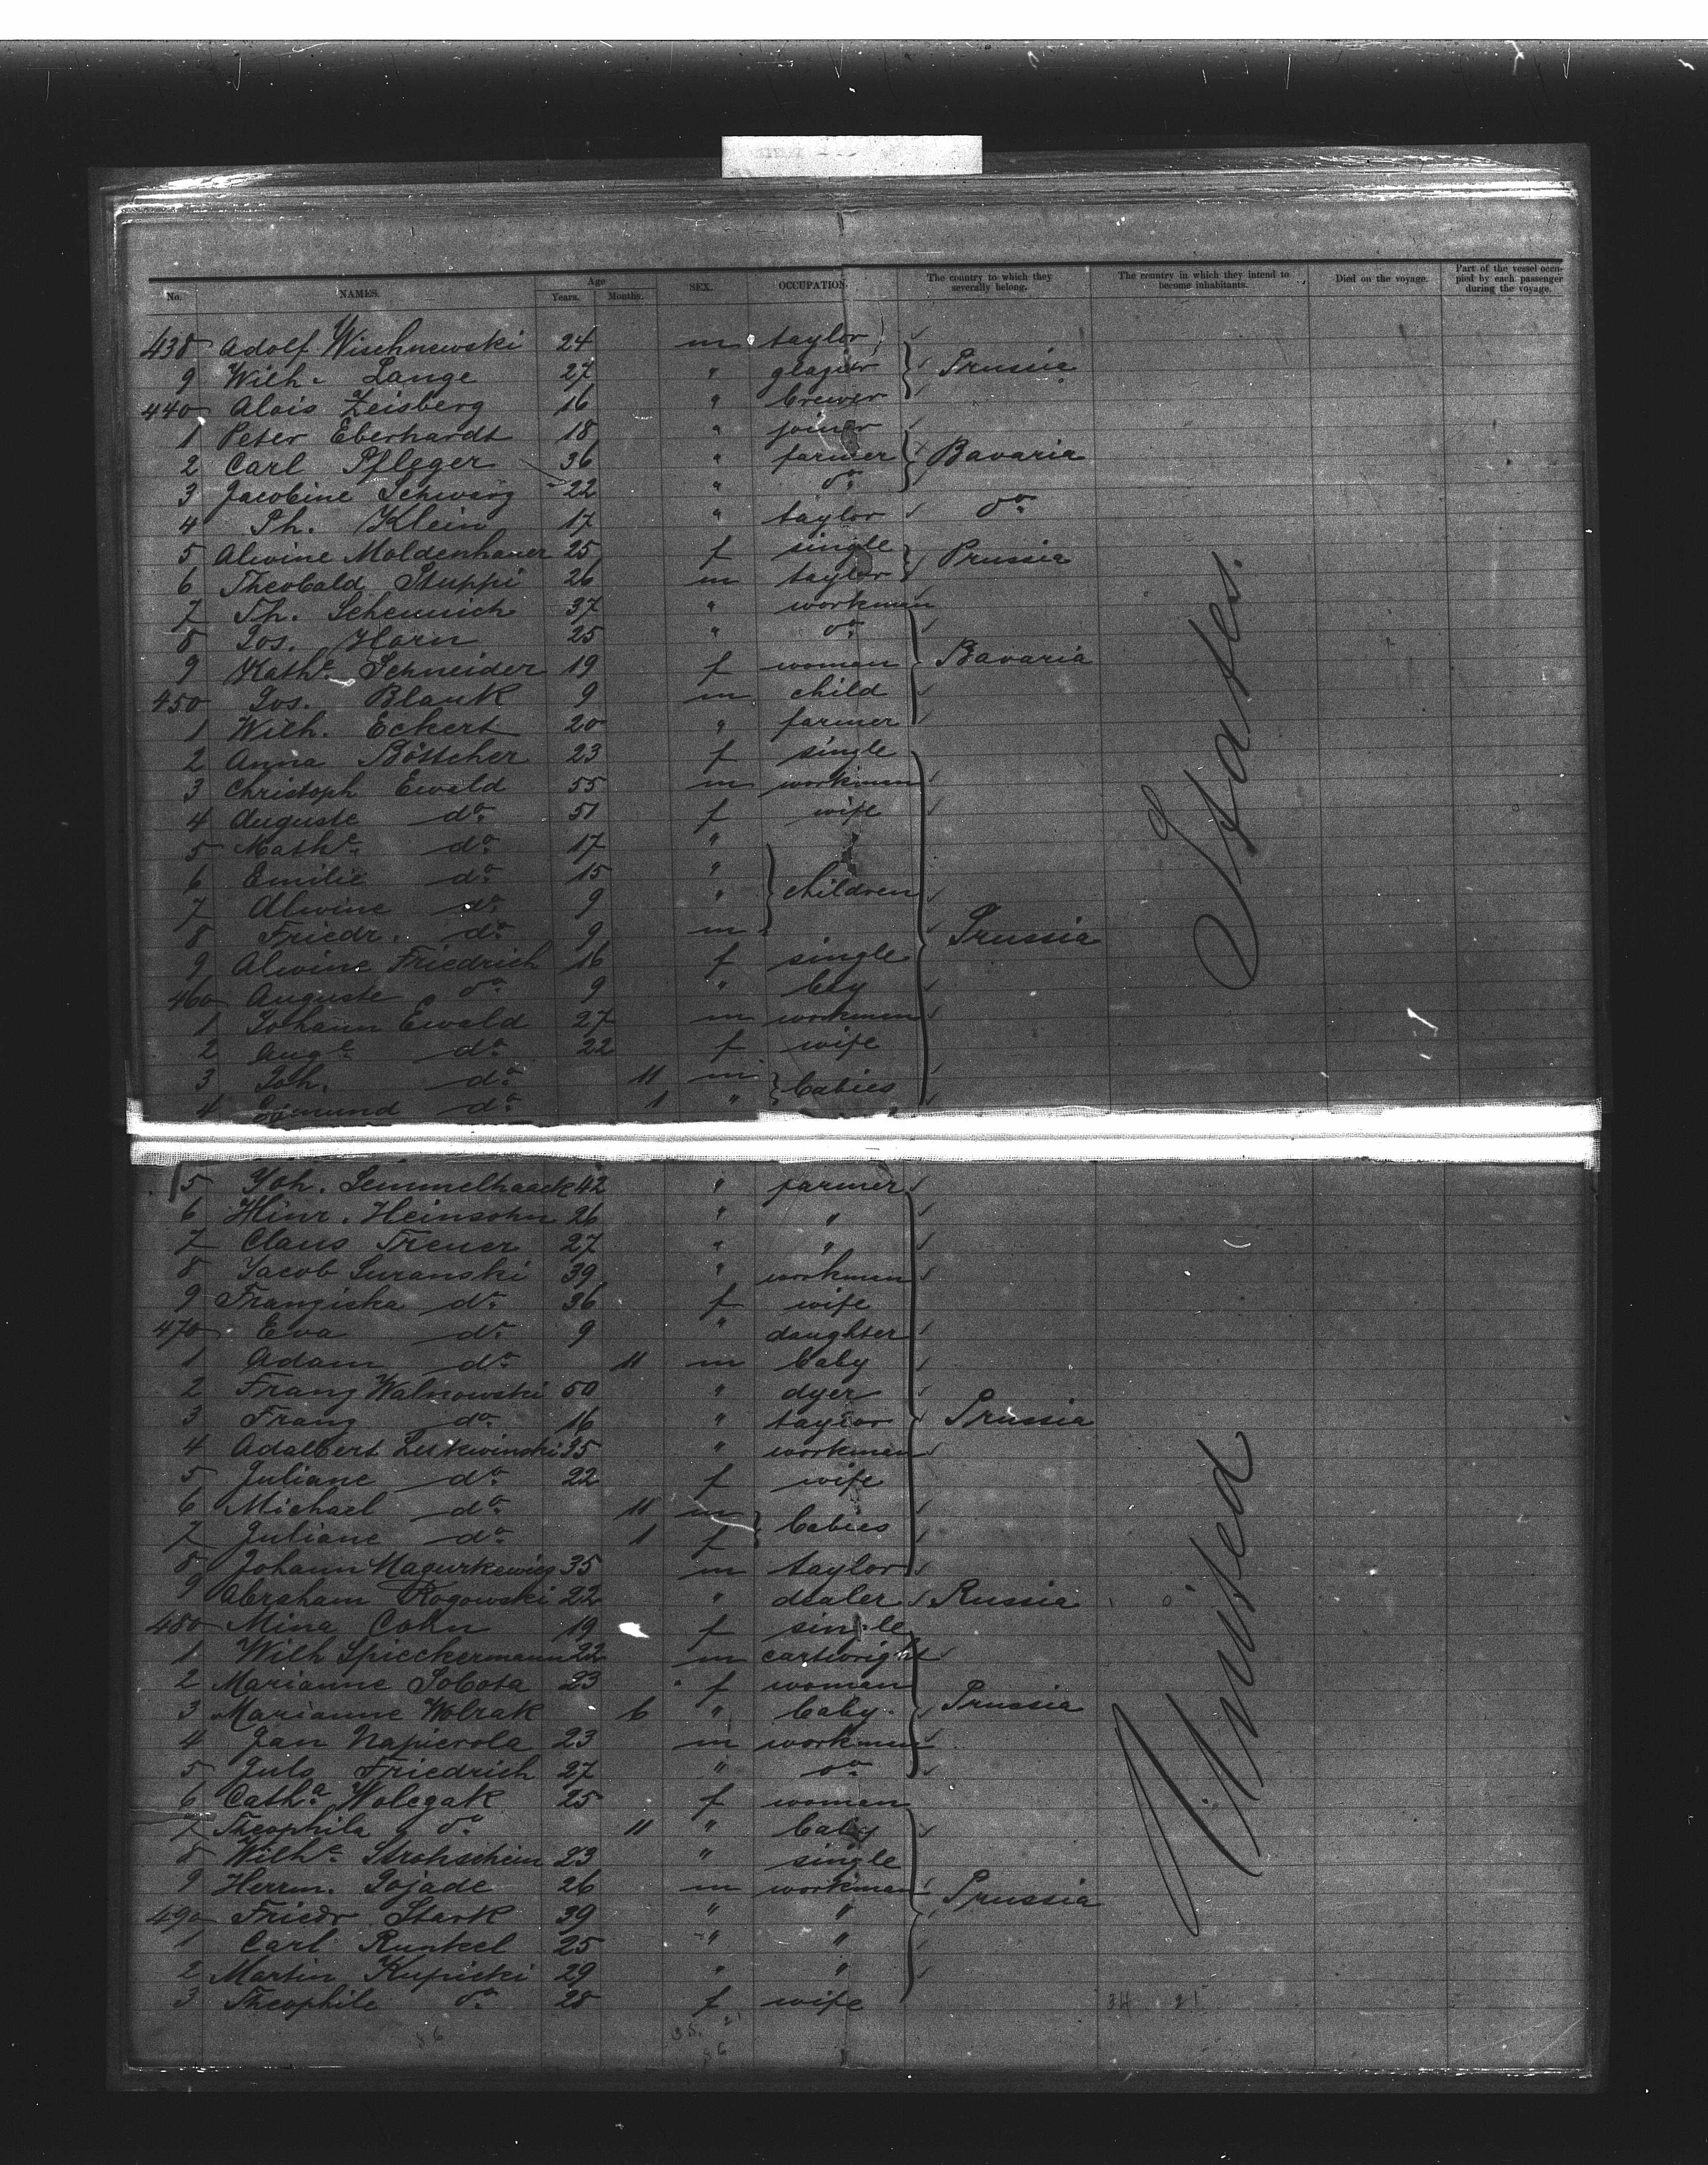 No. NAMES. Age Years. Months. SEX. OCCUPATION. The country to which they severally belong. The country in which they intend to become inhabitants. Died on the voyage. Part of the vessel occupied by each passenger during the voyage.
438 Adolf Wischnewski 24 m taylor
9 Wilh. Lange 27 " glazier Prussia
440 Alois Zeisberg 16 " brewer
1 Peter Eberhardt 18 " joiner
2 Carl Pfleger 36 " farmer Bavaria
3 Jacobine Schwarz 22 " do
4 Ph. Klein 17 " taylor do
5 Alwine Moldenhauer 25 f single Prussia
6 Theobald Stuppi 26 m taylor
7 Th. 37 " workmen
8 Jos. Horn 25 " do
9 Kathe Schneider 19 f woman Bavaria
450 Jos. Blank 9 m child
1 Wilh. Eckert 20 " farmer
2 Anna Böttcher 23 f single
3 Christoph Ewald 55 m workmen
4 Auguste do 51 f wife
5 Mathe do 17 "
6 Emilie do 15 "
7 Alwine do 9 " children
8 Friedr. do 9 m
9 Alwine Friedrich 16 f single Prussia
460 Auguste do 9 "
1 Johann Ewald 27 m workmen
2 Auge do 22 f wife
3 Joh. do 11 m babies
4 Edmund do 1 "
5 Joh. Semmelhaack 42 " farmer
6 Hinr. Heinsohn 26 " "
7 Claus Treuer 27 " "
8 Jacob Suranski 39 " workmen
9 Franziska do 36 f wife
470 Eva do 9 " daughter
1 Adam do 11 m baby
2 Franz Walnowski 50 " dyer
3 Franz do 16 " taylor Prussia
4 Adalbert 35 " workmen
5 Juliane do 22 f wife
6 Michael do 11 m babies
7 Juliane do 1 f
8 Johann Mazurkewicz 35 m taylor
9 Abraham Rogowski 22 " dealer Russia
480 Mina Cohn 19 f single
1 Wilh Spieckermann 22 m cartwright
2 Marianne Sobota 23 f woman
3 Marianne Wolrak 6 " baby Prussia
4 Jan Napierola 23 m workmen
5 Juls Friedrich 27 " do
6 Catha Wolczak 25 f woman
7 Theophila do 11 " baby
8 Wilhe Strohschein 23 " single
9 Herrm. Sojade 26 m workmen Prussia
490 Friedr. Stark 39 " "
1 Carl Runkel 25 " "
2 Martin Kupicki 29 " "
3 Theophile do 28 f wife
United States.
34 21
86
35. 21
86